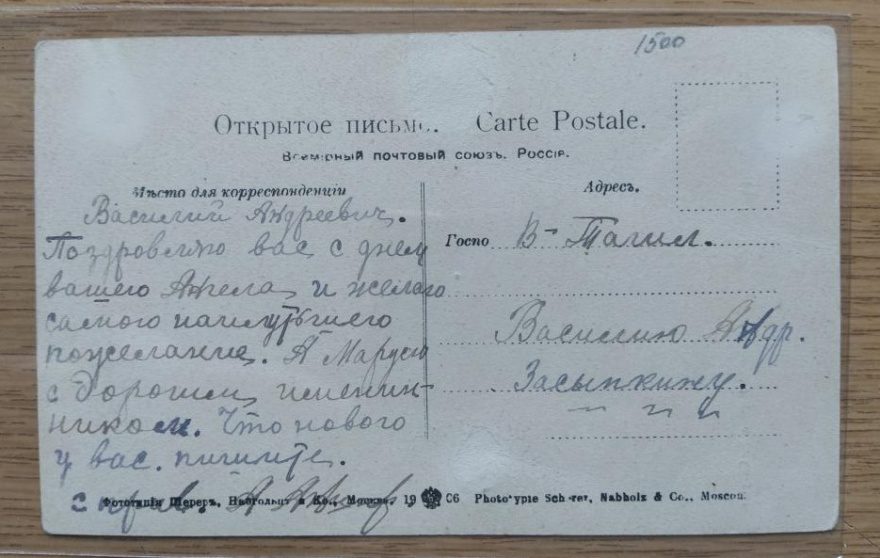 1500
Открытое письмо. Carte Postale.
Всемірный почтовый союзъ. Россія.
Мѣсто для корреспонденціи
Василий Андреевич.
Поздровляю вас с днем
вашего Ангела, и желаю
самого наилутьшего
пожелание. А Марусю
с дорогим именин-
ником. Что нового
у вас. пишите.
с прив.
Адресъ.
Госпо В-Тагил.
Василию Андр.
Засыпкину.
Фототипія Шереръ, Набгольцъ и Ко., Москва. 19 06 Phototypie Scherer, Nabholz & Co., Moscou.